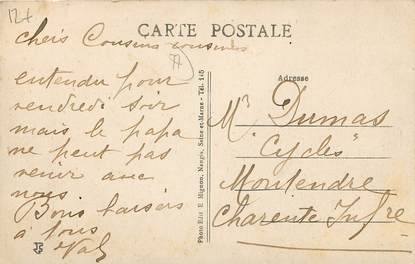 12+
CARTE POSTALE
chers Cousins cousines
entendu pour
vendredi soir
mais le papa
ne peut pas
venir avec
nous
Bons baisers
à tous
Photo Edit E Mignon, Nangis, Seine-et-Marne - Tél. 145
Adresse
Mr Dumas
"Cycles"
Montendre
Charente Infre